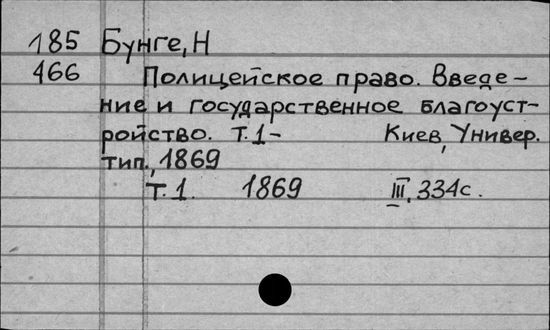 185 Бунге, Н
466 Полицейское право. Введе-
ние и государственное благоуст-
ройство. Т.1- Киев, Универ.
тип., 1869
Т.1. 1869 III, 334с.